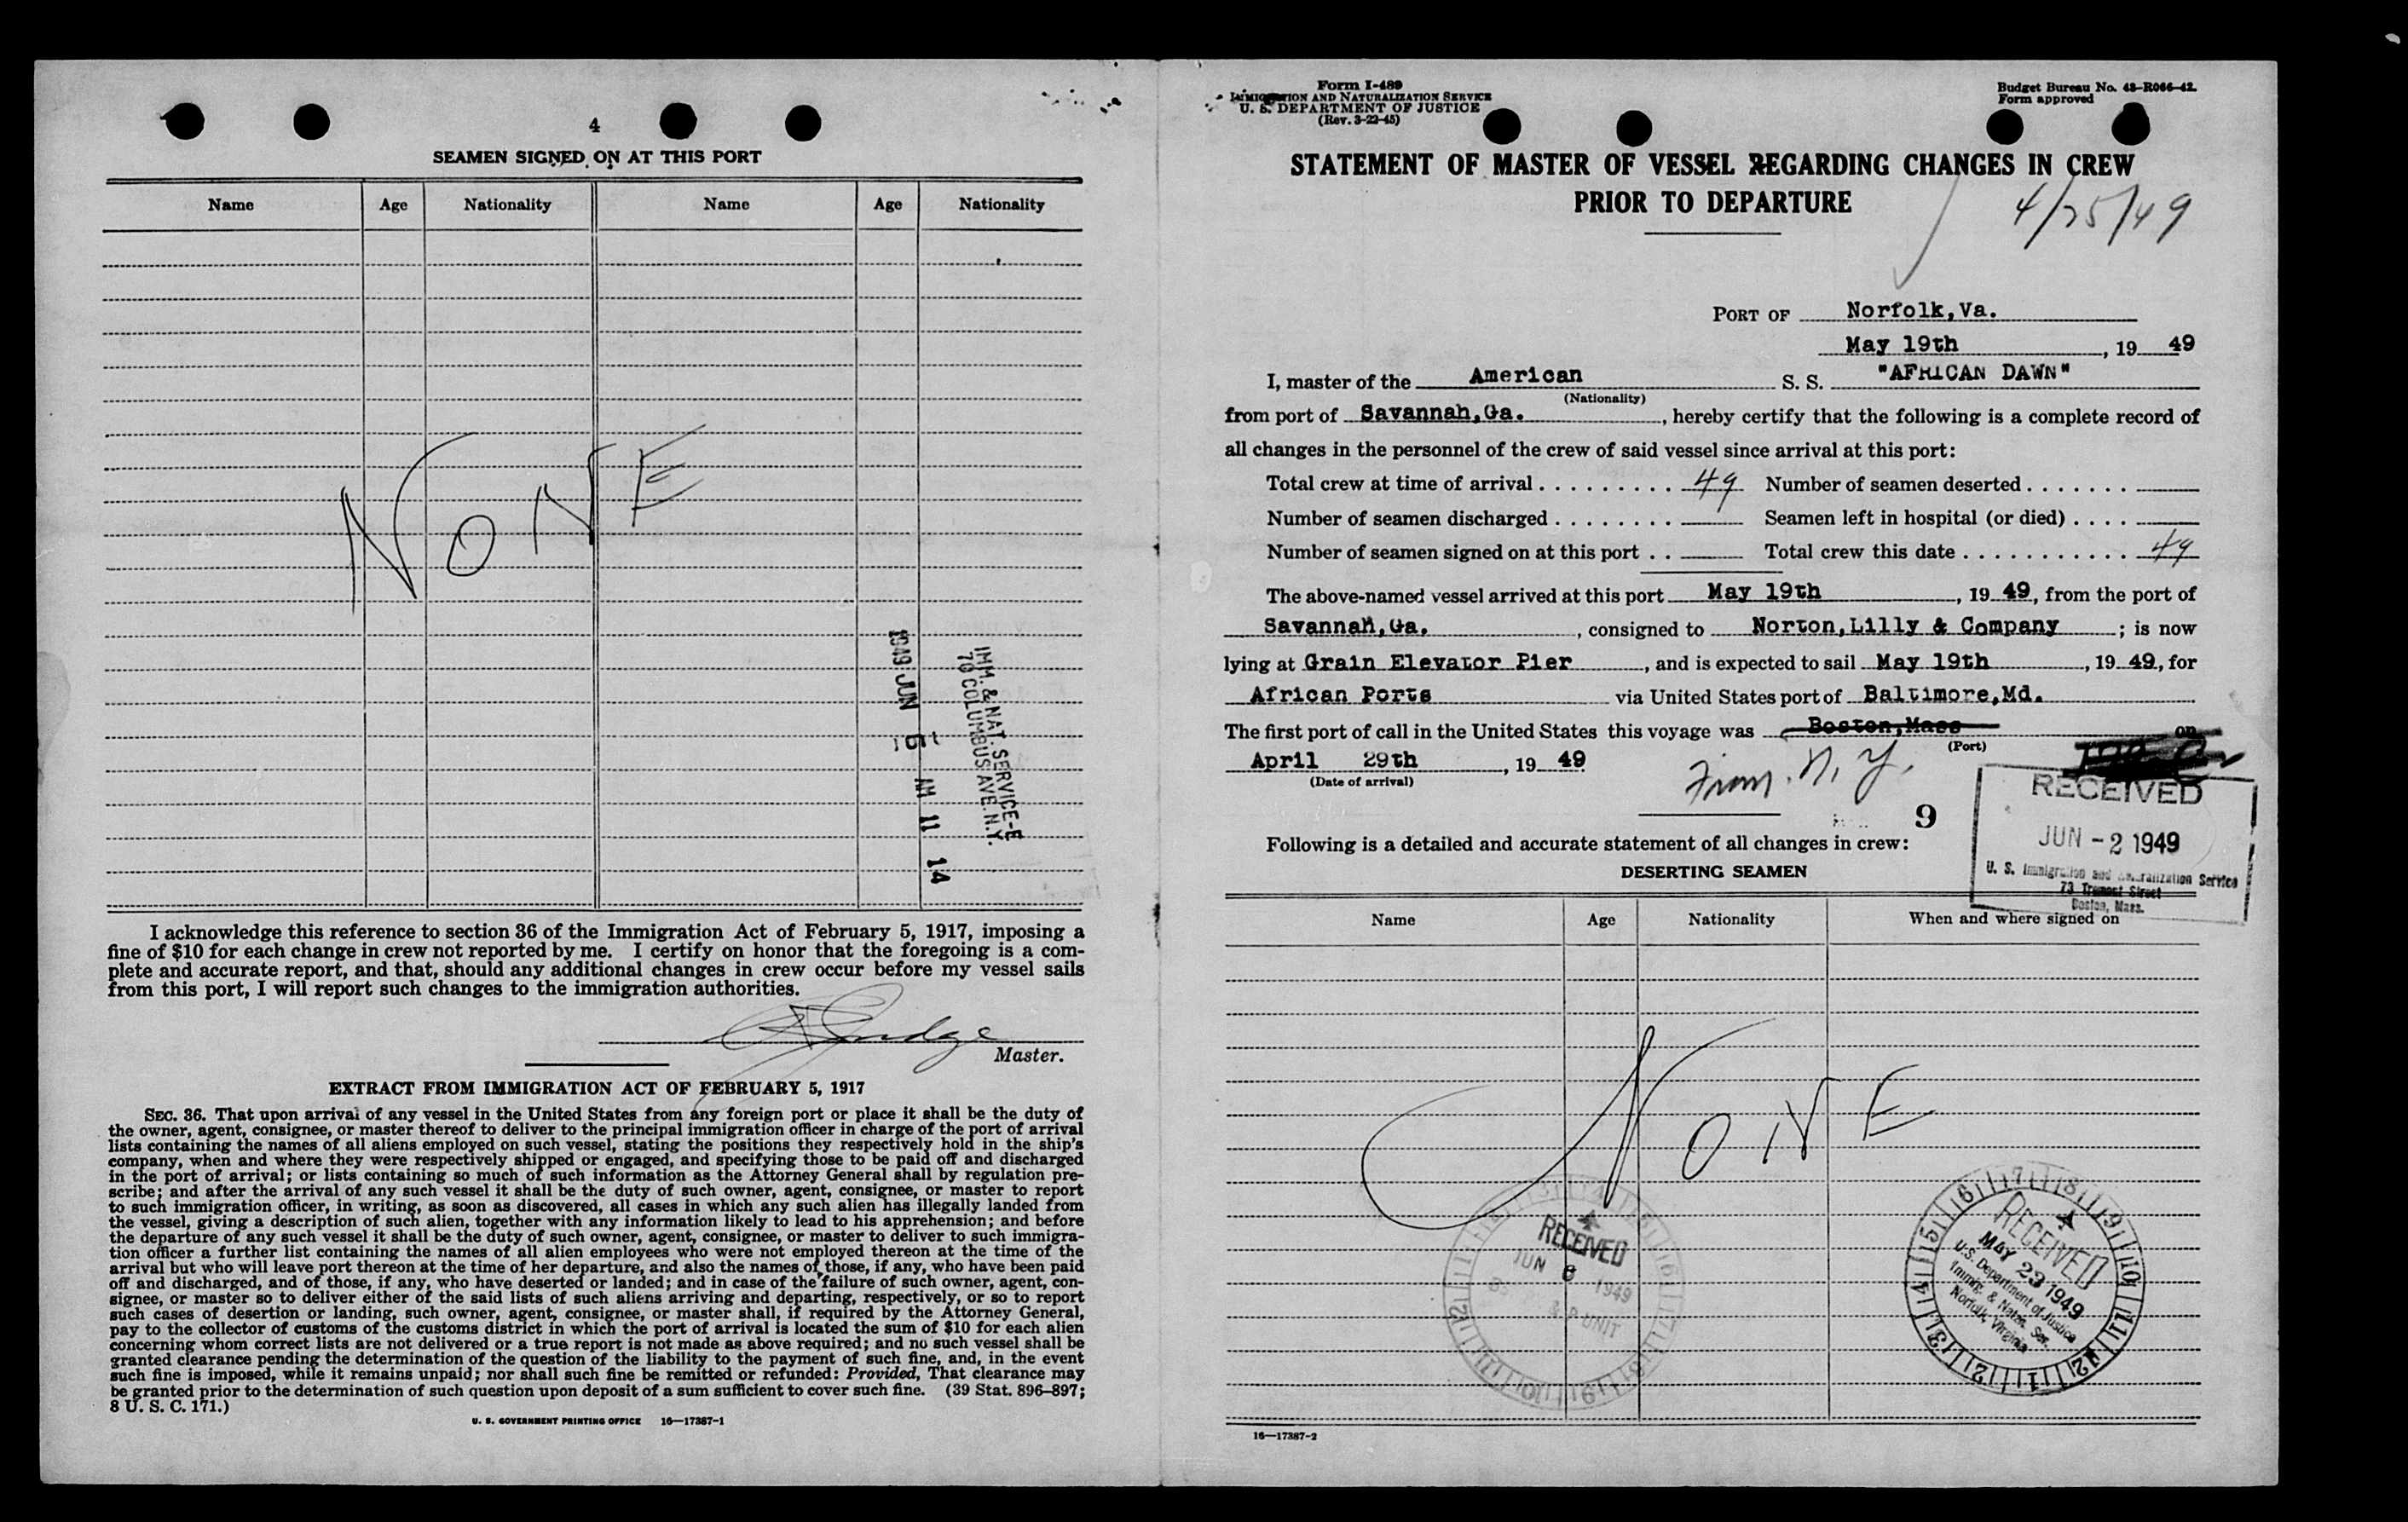 4
SEAMEN SIGNED ON AT THIS PORT
Name Age Nationality Name Age Nationality
NONE
1949 JUN 6 AM 11 14
IMM. & NAT. SERVICE-E
70 COLUMBUS AVE. N.Y.
I acknowledge this reference to section 36 of the Immigration Act of February 5, 1917, imposing a
fine of $10 for each change in crew not reported by me. I certify on honor that the foregoing is a com-
plete and accurate report, and that, should any additional changes in crew occur before my vessel sails
from this port, I will report such changes to the immigration authorities.
Master.
EXTRACT FROM IMMIGRATION ACT OF FEBRUARY 5, 1917
SEC. 36. That upon arrival of any vessel in the United States from any foreign port or place it shall be the duty of
the owner, agent, consignee, or master thereof to deliver to the principal immigration officer in charge of the port of arrival
lists containing the names of all aliens employed on such vessel, stating the positions they respectively hold in the ship's
company, when and where they were respectively shipped or engaged, and specifying those to be paid off and discharged
in the port of arrival; or lists containing so much of such information as the Attorney General shall by regulation pre-
scribe; and after the arrival of any such vessel it shall be the duty of such owner, agent, consignee, or master to report
to such immigration officer, in writing, as soon as discovered, all cases in which any such alien has illegally landed from
the vessel, giving a description of such alien, together with any information likely to lead to his apprehension; and before
the departure of any such vessel it shall be the duty of such owner, agent, consignee, or master to deliver to such immigra-
tion officer a further list containing the names of all alien employees who were not employed thereon at the time of the
arrival but who will leave port thereon at the time of her departure, and also the names of those, if any, who have been paid
off and discharged, and of those, if any, who have deserted or landed; and in case of the failure of such owner, agent, con-
signee, or master so to deliver either of the said lists of such aliens arriving and departing, respectively, or so to report
such cases of desertion or landing, such owner, agent, consignee, or master shall, if required by the Attorney General,
pay to the collector of customs of the customs district in which the port of arrival is located the sum of $10 for each alien
concerning whom correct lists are not delivered or a true report is not made as above required; and no such vessel shall be
granted clearance pending the determination of the question of the liability to the payment of such fine, and, in the event
such fine is imposed, while it remains unpaid; nor shall such fine be remitted or refunded: Provided, That clearance may
be granted prior to the determination of such question upon deposit of a sum sufficient to cover such fine. (39 Stat. 896–897;
8 U. S. C. 171.)
U. S. GOVERNMENT PRINTING OFFICE 16—17387-1
Form I-489
IMMIGRATION AND NATURALIZATION SERVICE
U. S. DEPARTMENT OF JUSTICE
(Rev. 3-22-45)
Budget Bureau No. 43-R066-42.
Form approved
STATEMENT OF MASTER OF VESSEL REGARDING CHANGES IN CREW
PRIOR TO DEPARTURE
4/25/49
PORT OF Norfolk,Va.
May 19th, 19 49
I, master of the American S. S. "AFRICAN DAWN"
(Nationality)
from port of Savannah,Ga., hereby certify that the following is a complete record of
all changes in the personnel of the crew of said vessel since arrival at this port:
Total crew at time of arrival 49 Number of seamen deserted
Number of seamen discharged Seamen left in hospital (or died)
Number of seamen signed on at this port Total crew this date 49
The above-named vessel arrived at this port May 19th, 19 49, from the port of
Savannah,Ga., consigned to Norton,Lilly & Company; is now
lying at Grain Elevator Pier, and is expected to sail May 19th, 19 49, for
African Ports via United States port of Baltimore,Md.
The first port of call in the United States this voyage was Boston,Mass on
(Port)
April 29th, 19 49
(Date of arrival)
From. N. Y.
9
RECEIVED
JUN - 2 1949
U. S. Immigration and Naturalization Service
73 Tremont Street
Boston, Mass.
Following is a detailed and accurate statement of all changes in crew:
DESERTING SEAMEN
Name Age Nationality When and where signed on
NONE
RECEIVED
JUN 6 1949
UNIT
RECEIVED
MAY 23 1949
U.S. Department of Justice
Immig. & Natzn. Ser.
Norfolk, Virginia
16—17387-2